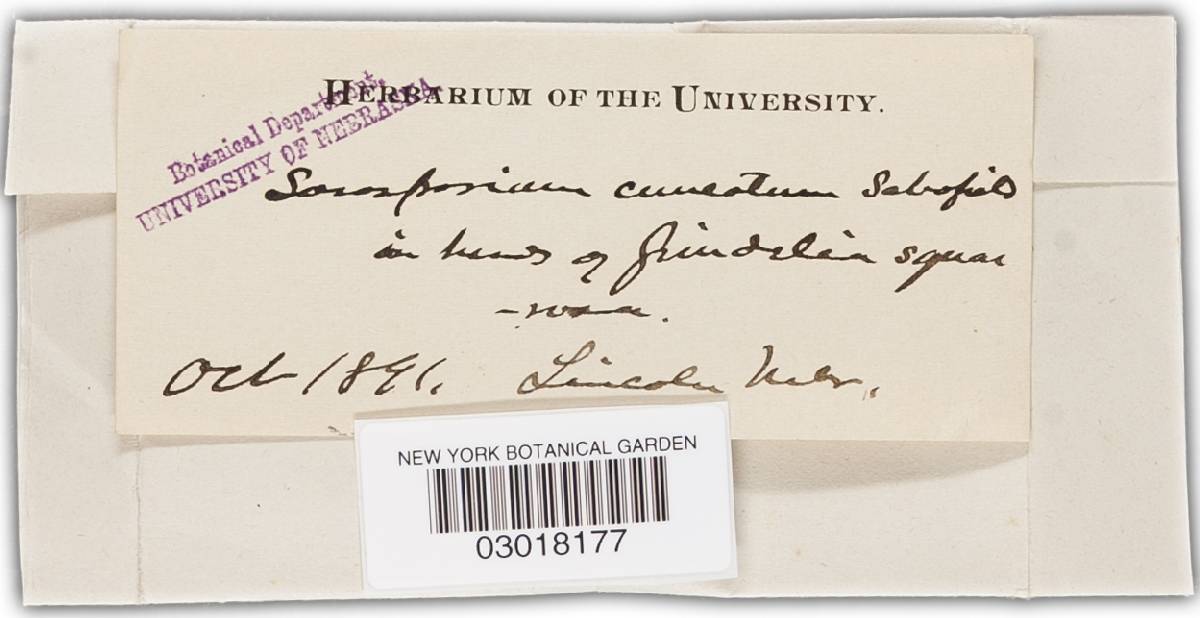 HERBARIUM OF THE UNIVERSITY.
Botanical Department,
UNIVERSITY OF NEBRASKA
Sorosporium cuneatum Schofield
in heads of Grindelia squar
-rosa.
Oct 1891. Lincoln Nebr.,
NEW YORK BOTANICAL GARDEN
03018177